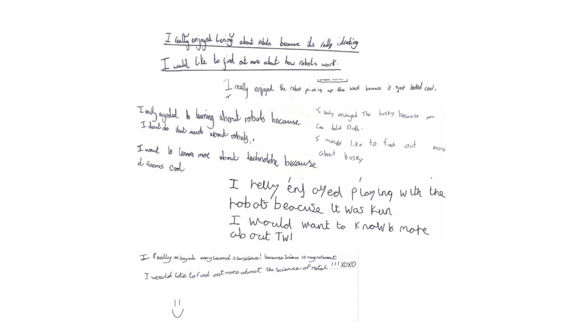 I really enjoyed about robots because its really
I would like to find out more about how robots work.
I really enjoyed the robot picking up the block because it just looked cool.
I really enjoyed learning about robots because
I don't do that much about robots.
I want to learn more about technology because
it seems cool
I enjoyed The busby because you
can build stuff.
I would like to find out more
about busby
I relly enjoyed playing with the
robots beacuse it was
I would want to know more
about
I really enjoyed because science is my
I would like to find out more about the science of !!! XOXO